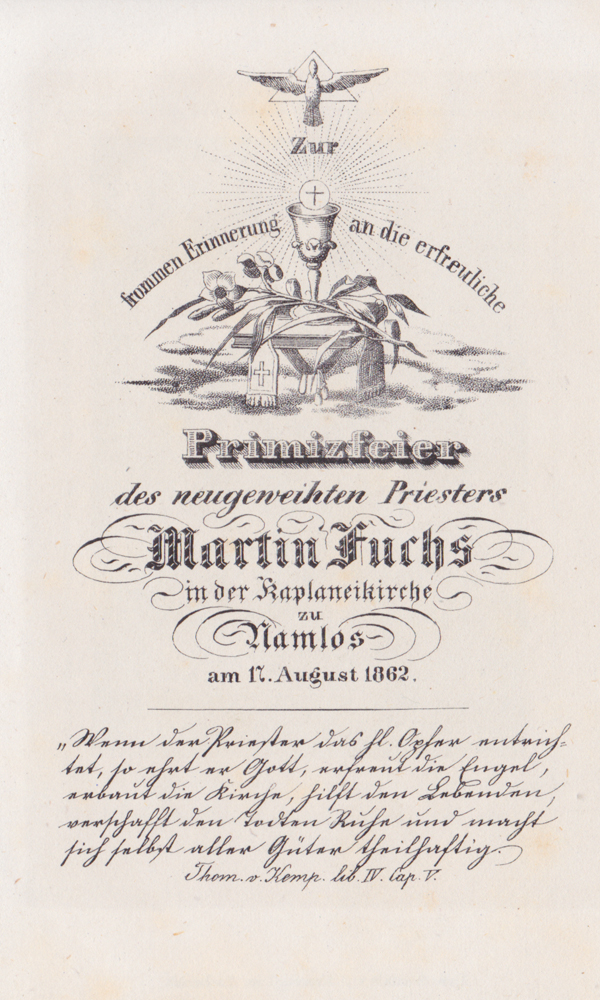 Zur
frommen Erinnerung an die erfreuliche
Primizfeier
des neugeweihten Priesters
Martin Fuchs
in der Kaplaneikirche
zu
Namlos
am 17. August 1862.
„Wenn der Priester das hl. Opfer entrich-
tet, so ehrt er Gott, erfreut die Engel,
erbaut die Kirche, hilft den Lebenden,
verschafft den Todten Ruhe und macht
sich selbst aller Güter theilhaftig.
Thom. v. Kemp. lib. IV. Cap. V.